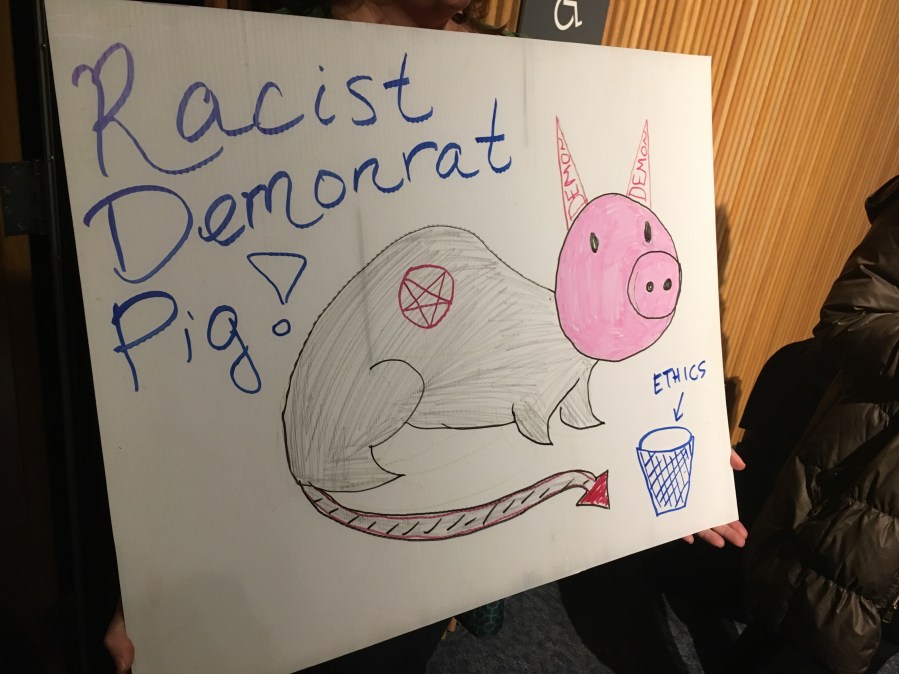 Racist
Demonrat
Pig!
DEMON
DEMON
ETHICS